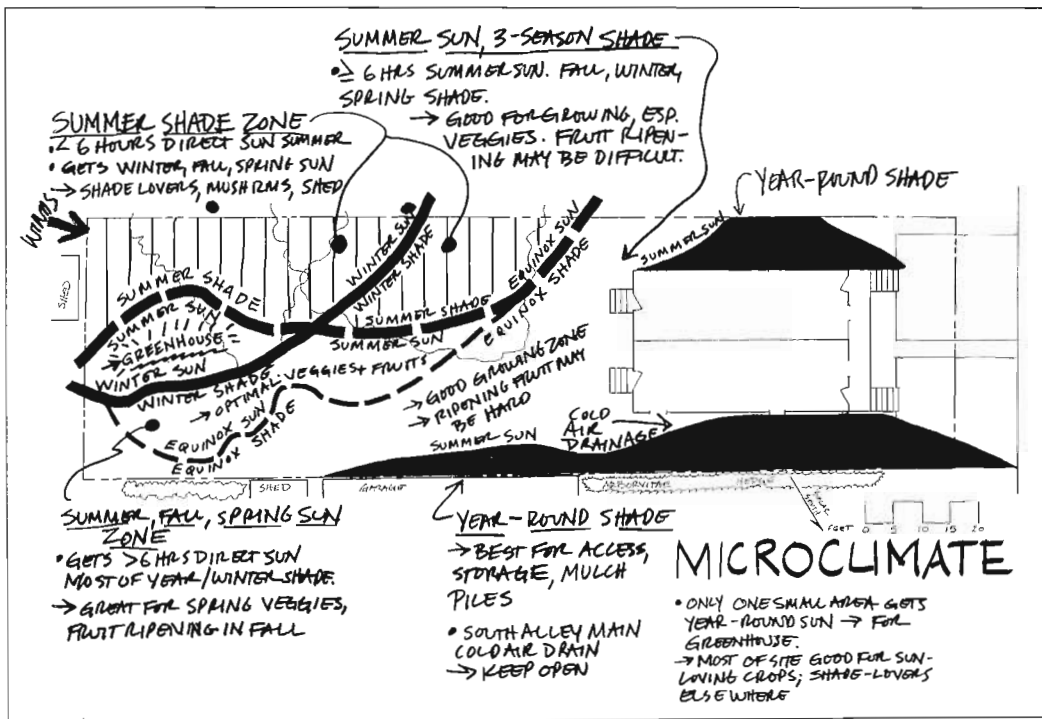 SUMMER SUN, 3-SEASON SHADE
• ≥ 6 HRS SUMMER SUN. FALL, WINTER,
SPRING SHADE.
→ GOOD FOR GROWING, ESP.
VEGGIES. FRUIT RIPEN-
ING MAY BE DIFFICULT.
SUMMER SHADE ZONE
• < 6 HOURS DIRECT SUN SUMMER
• GETS WINTER, FALL, SPRING SUN
→ SHADE LOVERS, MUSHRMS, SHED
YEAR-ROUND SHADE
WINDS
SHED
SUMMER SHADE
SUMMER SUN
→ GREENHOUSE
WINTER SUN
WINTER SHADE
WINTER SUN
WINTER SHADE
SUMMER SHADE
SUMMER SUN
EQUINOX SUN
EQUINOX SHADE
SUMMER SUN
→ OPTIMAL: VEGGIES + FRUITS
EQUINOX SUN
EQUINOX SHADE
→ GOOD GROWING ZONE
→ RIPENING FRUIT MAY
BE HARD
SUMMER SUN
COLD
AIR
DRAINAGE
SHED
GARAGE
ARBORVITAE HEDGE
SOLAR
SOUTH
FEET 0 5 10 15 20
SUMMER, FALL, SPRING SUN
ZONE
• GETS >6 HRS DIRECT SUN
MOST OF YEAR/WINTER SHADE.
→ GREAT FOR SPRING VEGGIES,
FRUIT RIPENING IN FALL
YEAR-ROUND SHADE
→ BEST FOR ACCESS,
STORAGE, MULCH
PILES
• SOUTH ALLEY MAIN
COLD AIR DRAIN
→ KEEP OPEN
MICROCLIMATE
• ONLY ONE SMALL AREA GETS
YEAR-ROUND SUN → FOR
GREENHOUSE.
→ MOST OF SITE GOOD FOR SUN-
LOVING CROPS; SHADE-LOVERS
ELSEWHERE